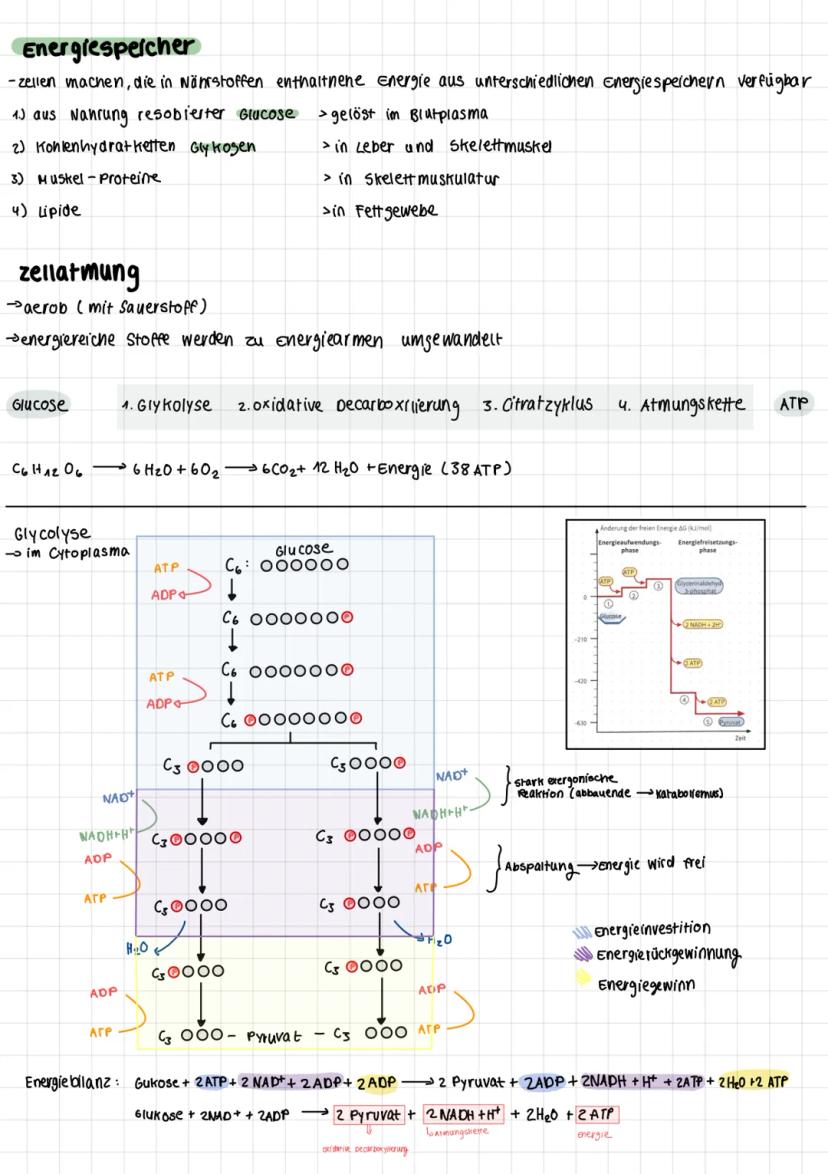 Energiespeicher
-zellen machen, die in Nährstoffen enthaltnene Energie aus unterschiedlichen Energiespeichern verfügbar
1.) aus Nahrung resobierter Glucose > gelöst im Blutplasma
2) Kohlenhydratketten Glykogen > in Leber und Skelettmuskel
3) Muskel-Proteine > in Skelettmuskulatur
4) Lipide >in Fettgewebe
zellatmung
→aerob (mit Sauerstoff)
→energiereiche Stoffe werden zu energiearmen umgewandelt
Glucose 1. Glykolyse 2. oxidative Decarboxylierung 3. Citratzyklus 4. Atmungskette ATP
C6H12O6 → 6 H2O + 6O2 → 6CO2+ 12 H2O +Energie (38 ATP)
Glycolyse
→ im Cytoplasma
Glucose
ATP C6:
ADP
C6 P
ATP C6 P
ADP
C6 P P
C3 P C3 P
NAD+ NAD+
NADH+H+ NADH+H+
stark exergonische
Reaktion (abbauende → Katabolismus)
C3 P P C3 P P
ADP ADP
ATP ATP
Abspaltung →energie wird frei
C3 P C3 P
H2O H2O
C3 P C3 P
ADP ADP
ATP ATP
C3 - Pyruvat - C3
Änderung der freien Energie ΔG (kJ/mol)
Energieaufwendungs-
phase
Energiefreisetzungs-
phase
ATP ATP
Glycerinaldehyd-
3-phosphat
0 1 2 3
Glucose
2 NADH + 2H+
-210
2 ATP
-420
4 2 ATP
-630 5 Pyruvat
Zeit
Energieinvestition
Energierückgewinnung
Energiegewinn
Energiebilanz: Gukose + 2ATP + 2 NAD+ + 2ADP + 2 ADP → 2 Pyruvat + 2ADP + 2NADH + H+ + 2ATP + 2H2O +2 ATP
Glukose + 2NAD+ + 2ADP → 2 Pyruvat + 2 NADH +H+ + 2H2O + 2 ATP
oxidative Decarboxylierung
Atmungskette
energie